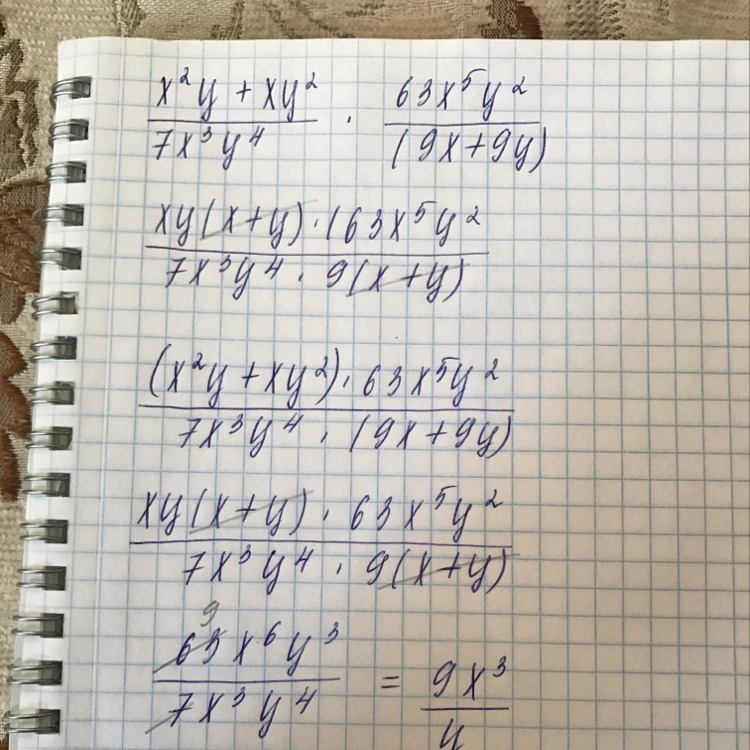 x²y + xy² / 7x³y⁴ · 63x⁵y² / (9x+9y)
xy(x+y)·(63x⁵y² / 7x³y⁴ · 9(x+y)
(x²y + xy²) · 63x⁵y² / 7x³y⁴ · (9x+9y)
xy(x+y) · 63x⁵y² / 7x³y⁴ · 9(x+y)
9
63x⁶y³ / 7x³y⁴ = 9x³ / y